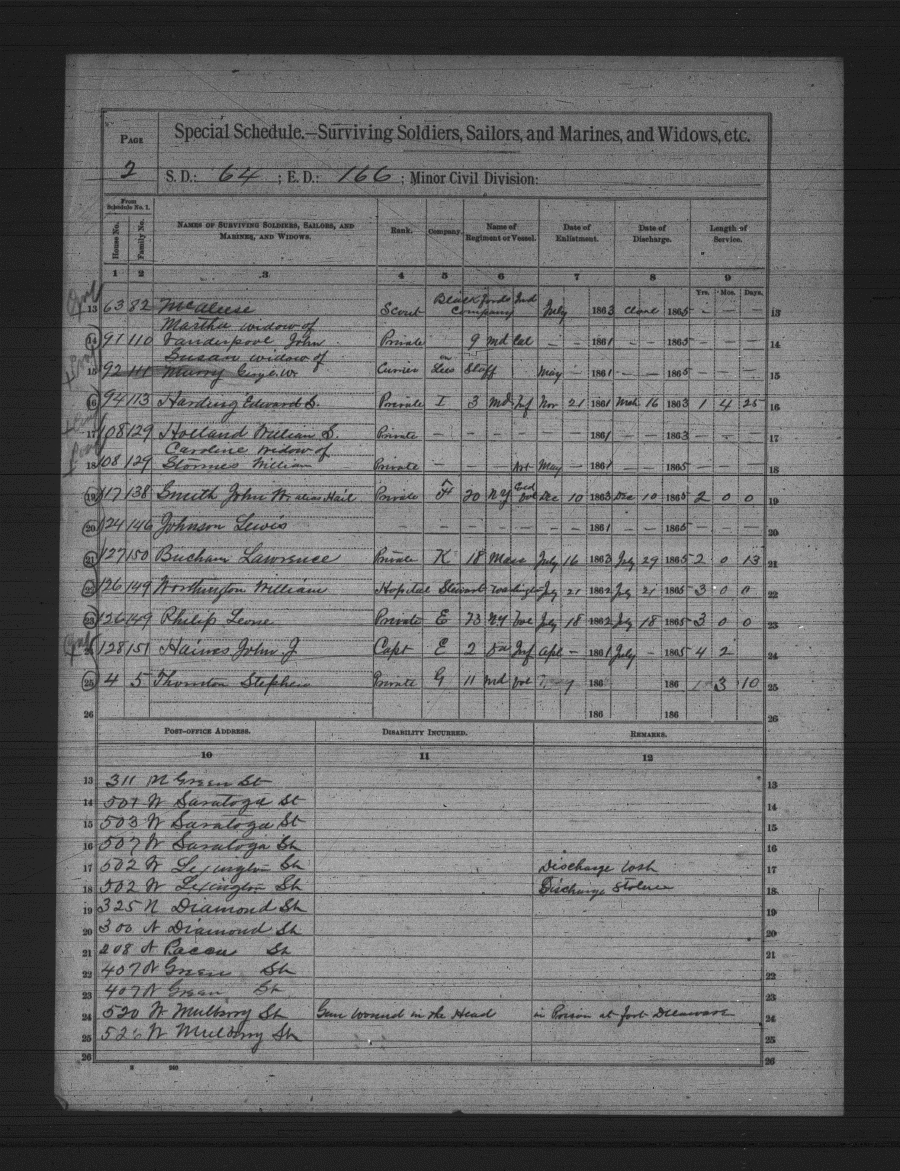 PAGE
2
Special Schedule.—Surviving Soldiers, Sailors, and Marines, and Widows, etc.
S. D.: 64 ; E. D.: 166 ; Minor Civil Division:
From Schedule No. 1.
House No. Family No. NAMES OF SURVIVING SOLDIERS, SAILORS, AND MARINES, AND WIDOWS. Rank. Company. Name of Regiment or Vessel. Date of Enlistment. Date of Discharge. Length of Service.
1 2 3 4 5 6 7 8 9
Yrs. Mos. Days.
13 63 82 McAleese Scout Company July 1863 1865 — — — 13
Martha widow of
14 91 110 Vanderpool John Private 9 Md Cal — — 1861 — — 1865 — — — 14
Susan widow of
15 92 111 Murry Currier Staff May — 1861 — — 1865 — — — 15
16 94 113 Harding Edward S. Private I 3 Md Inf Nov 21 1861 Mch 16 1863 1 4 25 16
17 108 129 Holland William S. Private — — — — — — 1861 — — 1863 — — — 17
Caroline widow of
18 108 129 Stormes William Private — — — Art May — 1861 — — 1865 — — — 18
19 117 138 Smith John W alias Hail Private F 20 NY Dec 10 1863 Dec 10 1865 2 0 0 19
20 124 146 Johnson Lewis — — — — — — 1861 — — 1865 — — — 20
21 127 150 Bucham Lawrence Private K 18 Mass July 16 1863 July 29 1865 2 0 13 21
22 126 149 Worthington William Hospital Stewart July 21 1862 July 21 1865 3 0 0 22
23 126 149 Philip Leone Private E 73 NY Vol July 18 1862 July 18 1865 3 0 0 23
24 128 151 Haines John J Capt E 2 Inf Apl — 1861 July — 1865 4 2 24
25 4 5 Thornton Stephen Private G 11 Md Vol 186 186 1 3 10 25
26 186 186 26
POST-OFFICE ADDRESS. DISABILITY INCURRED. REMARKS.
10 11 12
13 311 N Green St 13
14 501 W Saratoga St 14
15 503 W Saratoga St 15
16 507 W Saratoga St 16
17 502 W Lexington St Discharge Lost 17
18 502 W Lexington St Discharge Stolen 18
19 325 N Diamond St 19
20 300 N Diamond St 20
21 208 N Pacca St 21
22 407 N Green St 22
23 407 N Green St 23
24 520 W Mulbrry St Gun Wound in the Head in Prison at fort Delaware 24
25 526 W Mulbrry St 25
26 26